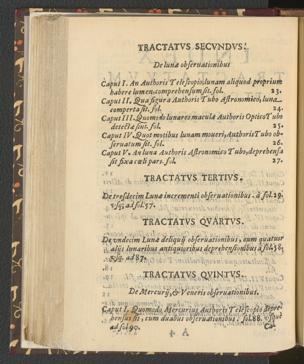 TRACTATVS SECVNDVS.
De lunæ obseruationibus
Caput I. An Authoris Telescopio, lunam aliquod proprium
habere lumen, comprehensum sit. fol. 23.
Caput II. Qua figura Authoris Tubo Astronomico, luna
comperta sit. fol. 24.
Caput III. Quomodo lunares maculæ Authoris Optico Tubo
detectæ sint. fol. 25.
Caput IV. Quot motibus lunam moueri, Authoris Tubo ob-
seruatum sit. fol. 26.
Caput V. An luna Authoris Astronomico Tubo, deprehensa
sit fixa cœli pars. fol. 27.
TRACTATVS TERTIVS.
De tresdecim Lunæ incrementi obseruationibus. à fol. 29.
vsq; ad fol. 57.
TRACTATVS QVARTVS.
De vndecim Lunæ deliquij obseruationibus, cum quatuor
alijs lunaribus antiquioribus deprehensionibus à fol. 58.
vsq; ad 87.
TRACTATVS QVINTVS.
De Mercurij, & Veneris obseruationibus.
Caput I. Quomodo Mercurius Authoris Telescopio depre-
hensus sit, cum duabus obseruationibus. fol. 88. vsque
ad fol. 90.